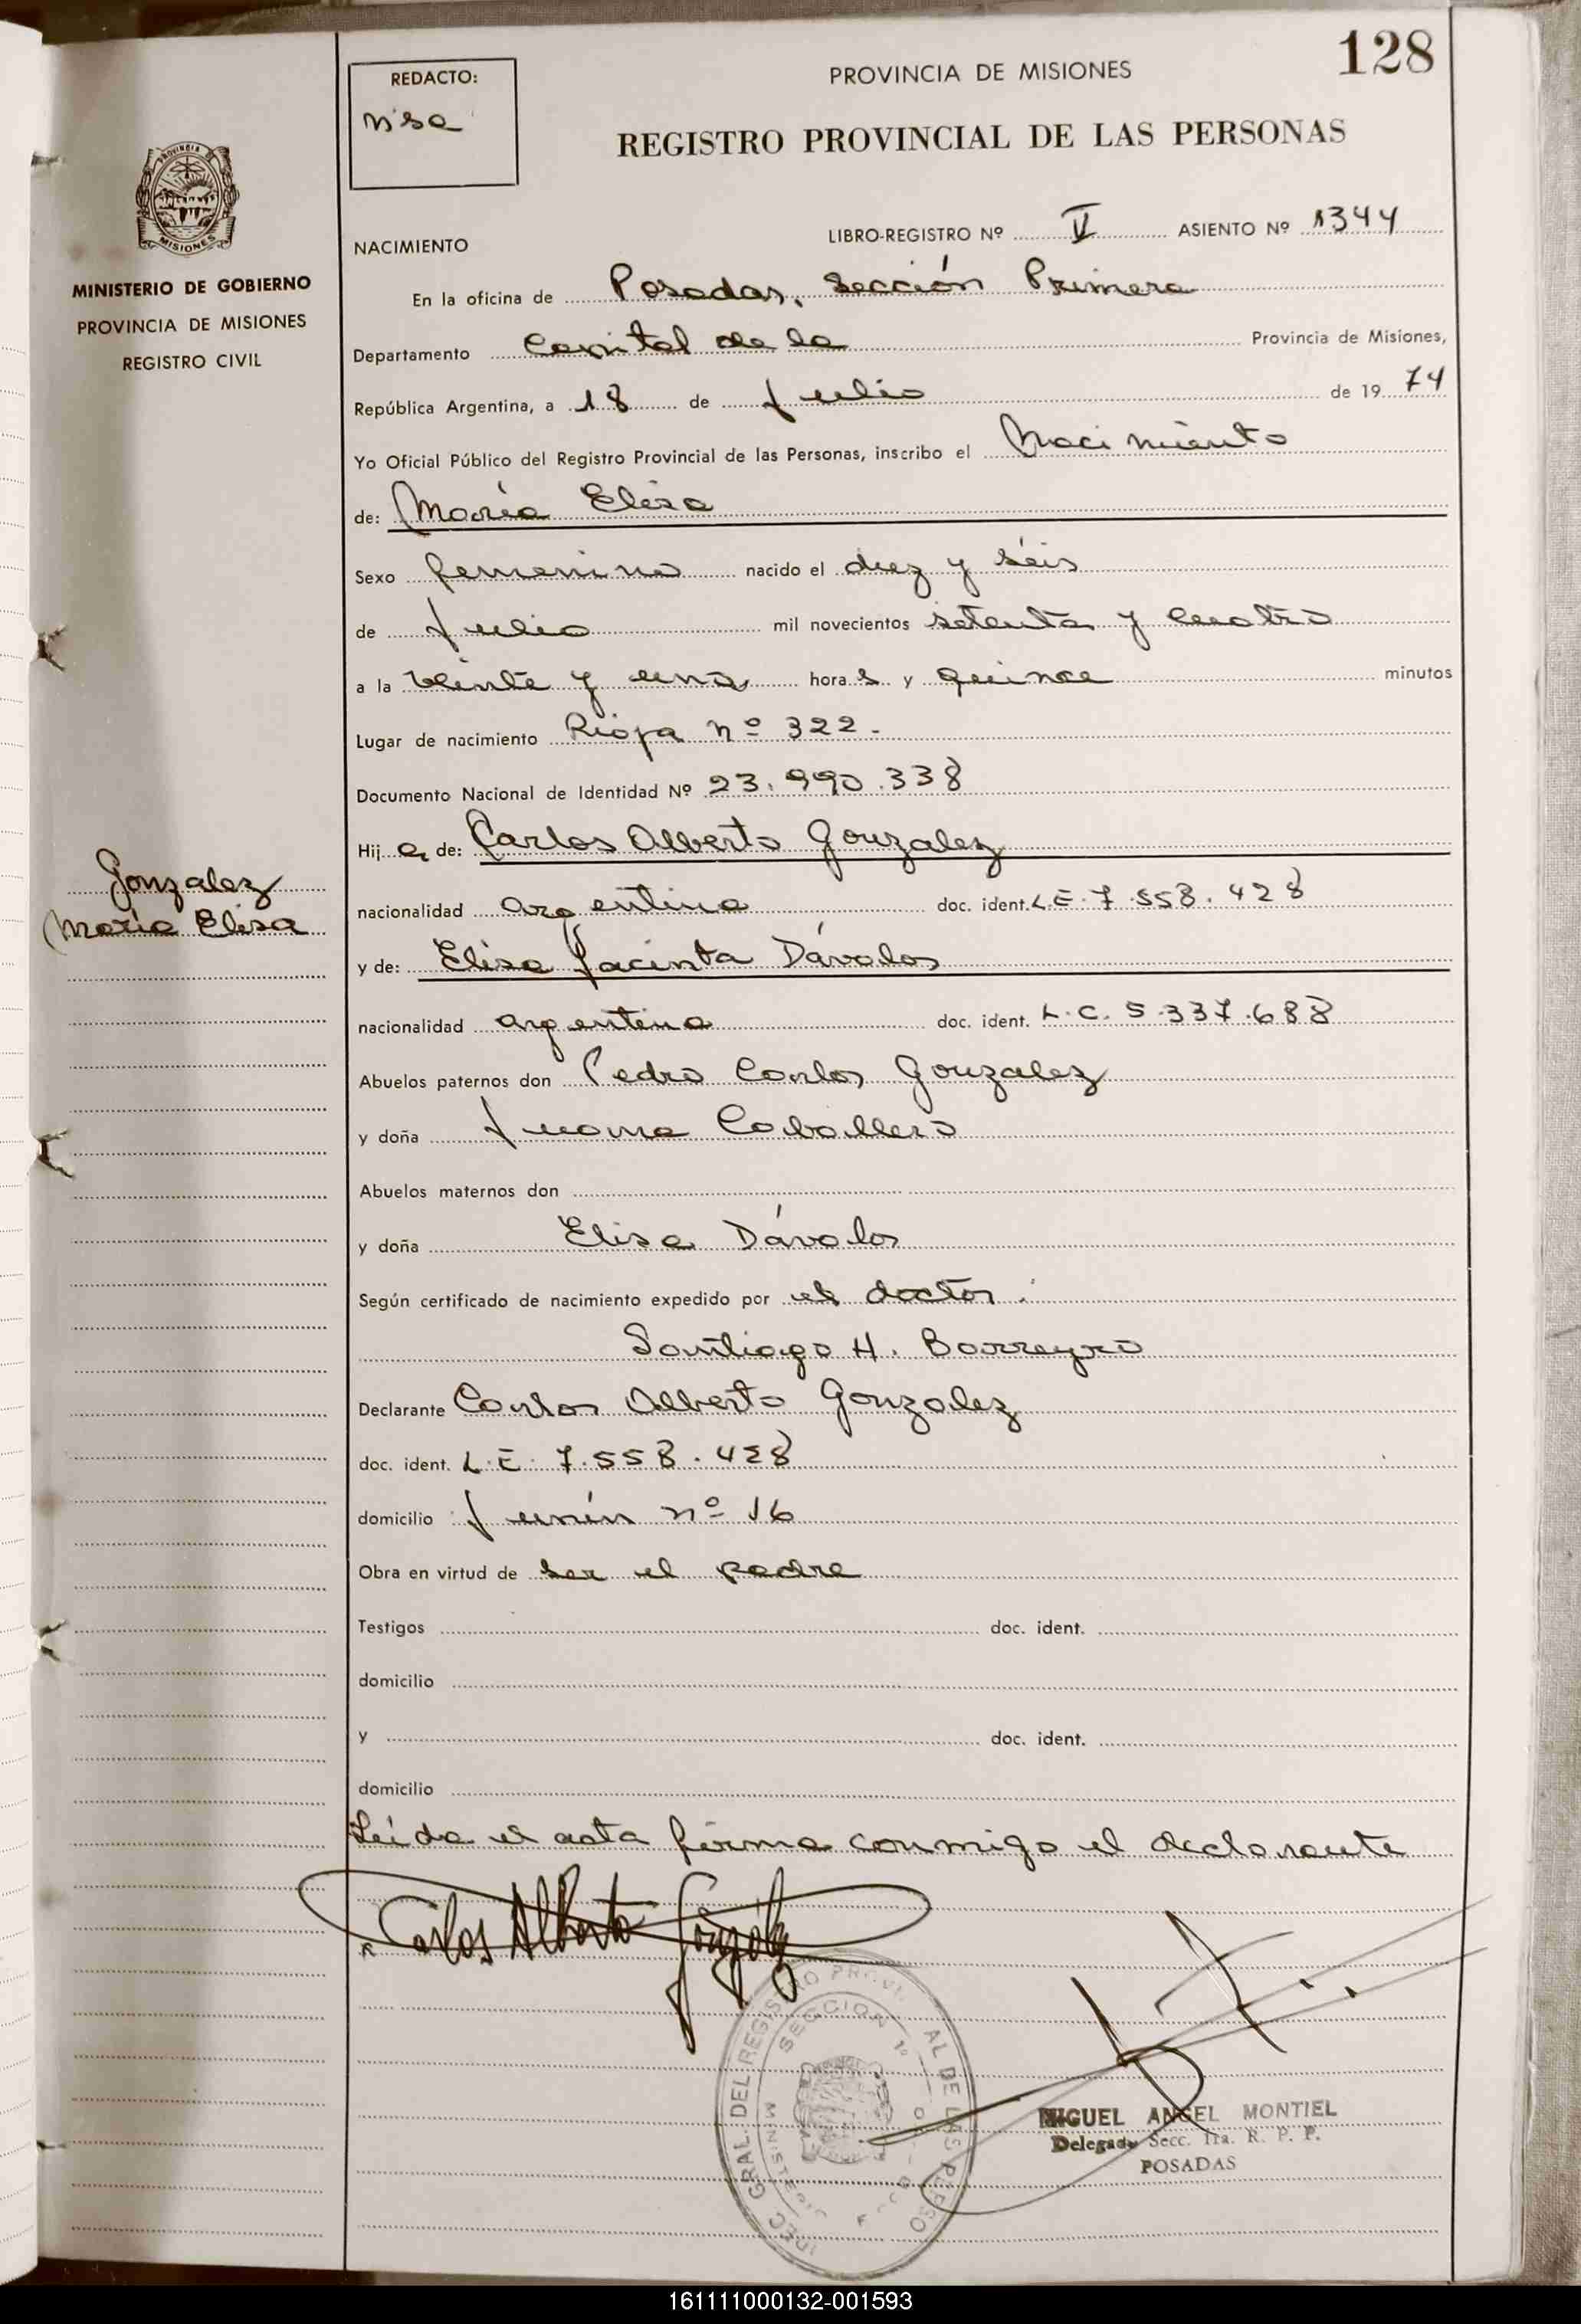 128
REDACTO:
PROVINCIA DE MISIONES
REGISTRO PROVINCIAL DE LAS PERSONAS
PROVINCIA DE
MISIONES
MINISTERIO DE GOBIERNO
PROVINCIA DE MISIONES
REGISTRO CIVIL
NACIMIENTO
LIBRO-REGISTRO Nº V ASIENTO Nº 1344
En la oficina de Posadas, Sección Primera
Departamento Capital de la Provincia de Misiones,
República Argentina, a 18 de Julio de 1974
Yo Oficial Público del Registro Provincial de las Personas, inscribo el Nacimiento
de: María Elisa
Sexo femenino nacido el diez y séis
de Julio mil novecientos setenta y cuatro
a la veinte y una hora s y quince minutos
Lugar de nacimiento Rioja nº 322.
Documento Nacional de Identidad Nº 23.990.338
Hij a de: Carlos Alberto Gonzalez
Gonzalez
María Elisa
nacionalidad argentina doc. ident. L.E. 7.558.428
y de: Elisa Jacinta Dávalos
nacionalidad argentina doc. ident. L.C. 5.337.688
Abuelos paternos don Pedro Carlos Gonzalez
y doña Juana Caballero
Abuelos maternos don
y doña Elisa Dávalos
Según certificado de nacimiento expedido por el doctor:
Santiago H. Barreyro
Declarante Carlos Alberto Gonzalez
doc. ident. L.E. 7.558.428
domicilio Junín nº 16
Obra en virtud de ser el padre
Testigos doc. ident.
domicilio
y doc. ident.
domicilio
Leída el acta firma conmigo el declarante
Carlos Alberto González
SECCION 1º
MIGUEL ANGEL MONTIEL
Delegado Secc. 1ra. R. P. P.
POSADAS
161111000132-001593